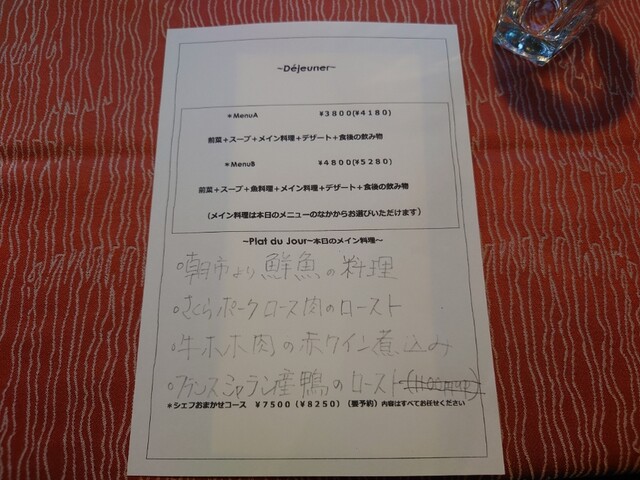 ~Déjeuner~
*MenuA ¥3800(¥4180)
前菜+スープ+メイン料理+デザート+食後の飲み物
*MenuB ¥4800(¥5280)
前菜+スープ+魚料理+メイン料理+デザート+食後の飲み物
(メイン料理は本日のメニューのなかからお選びいただけます)
~Plat du Jour~本日のメイン料理~
◦朝市より鮮魚の料理
◦さくらポークロース肉のロースト
◦牛ホホ肉の赤ワイン煮込み
◦フランスシャラン産鴨のロースト
*シェフおまかせコース ¥7500(¥8250)(要予約)内容はすべてお任せください